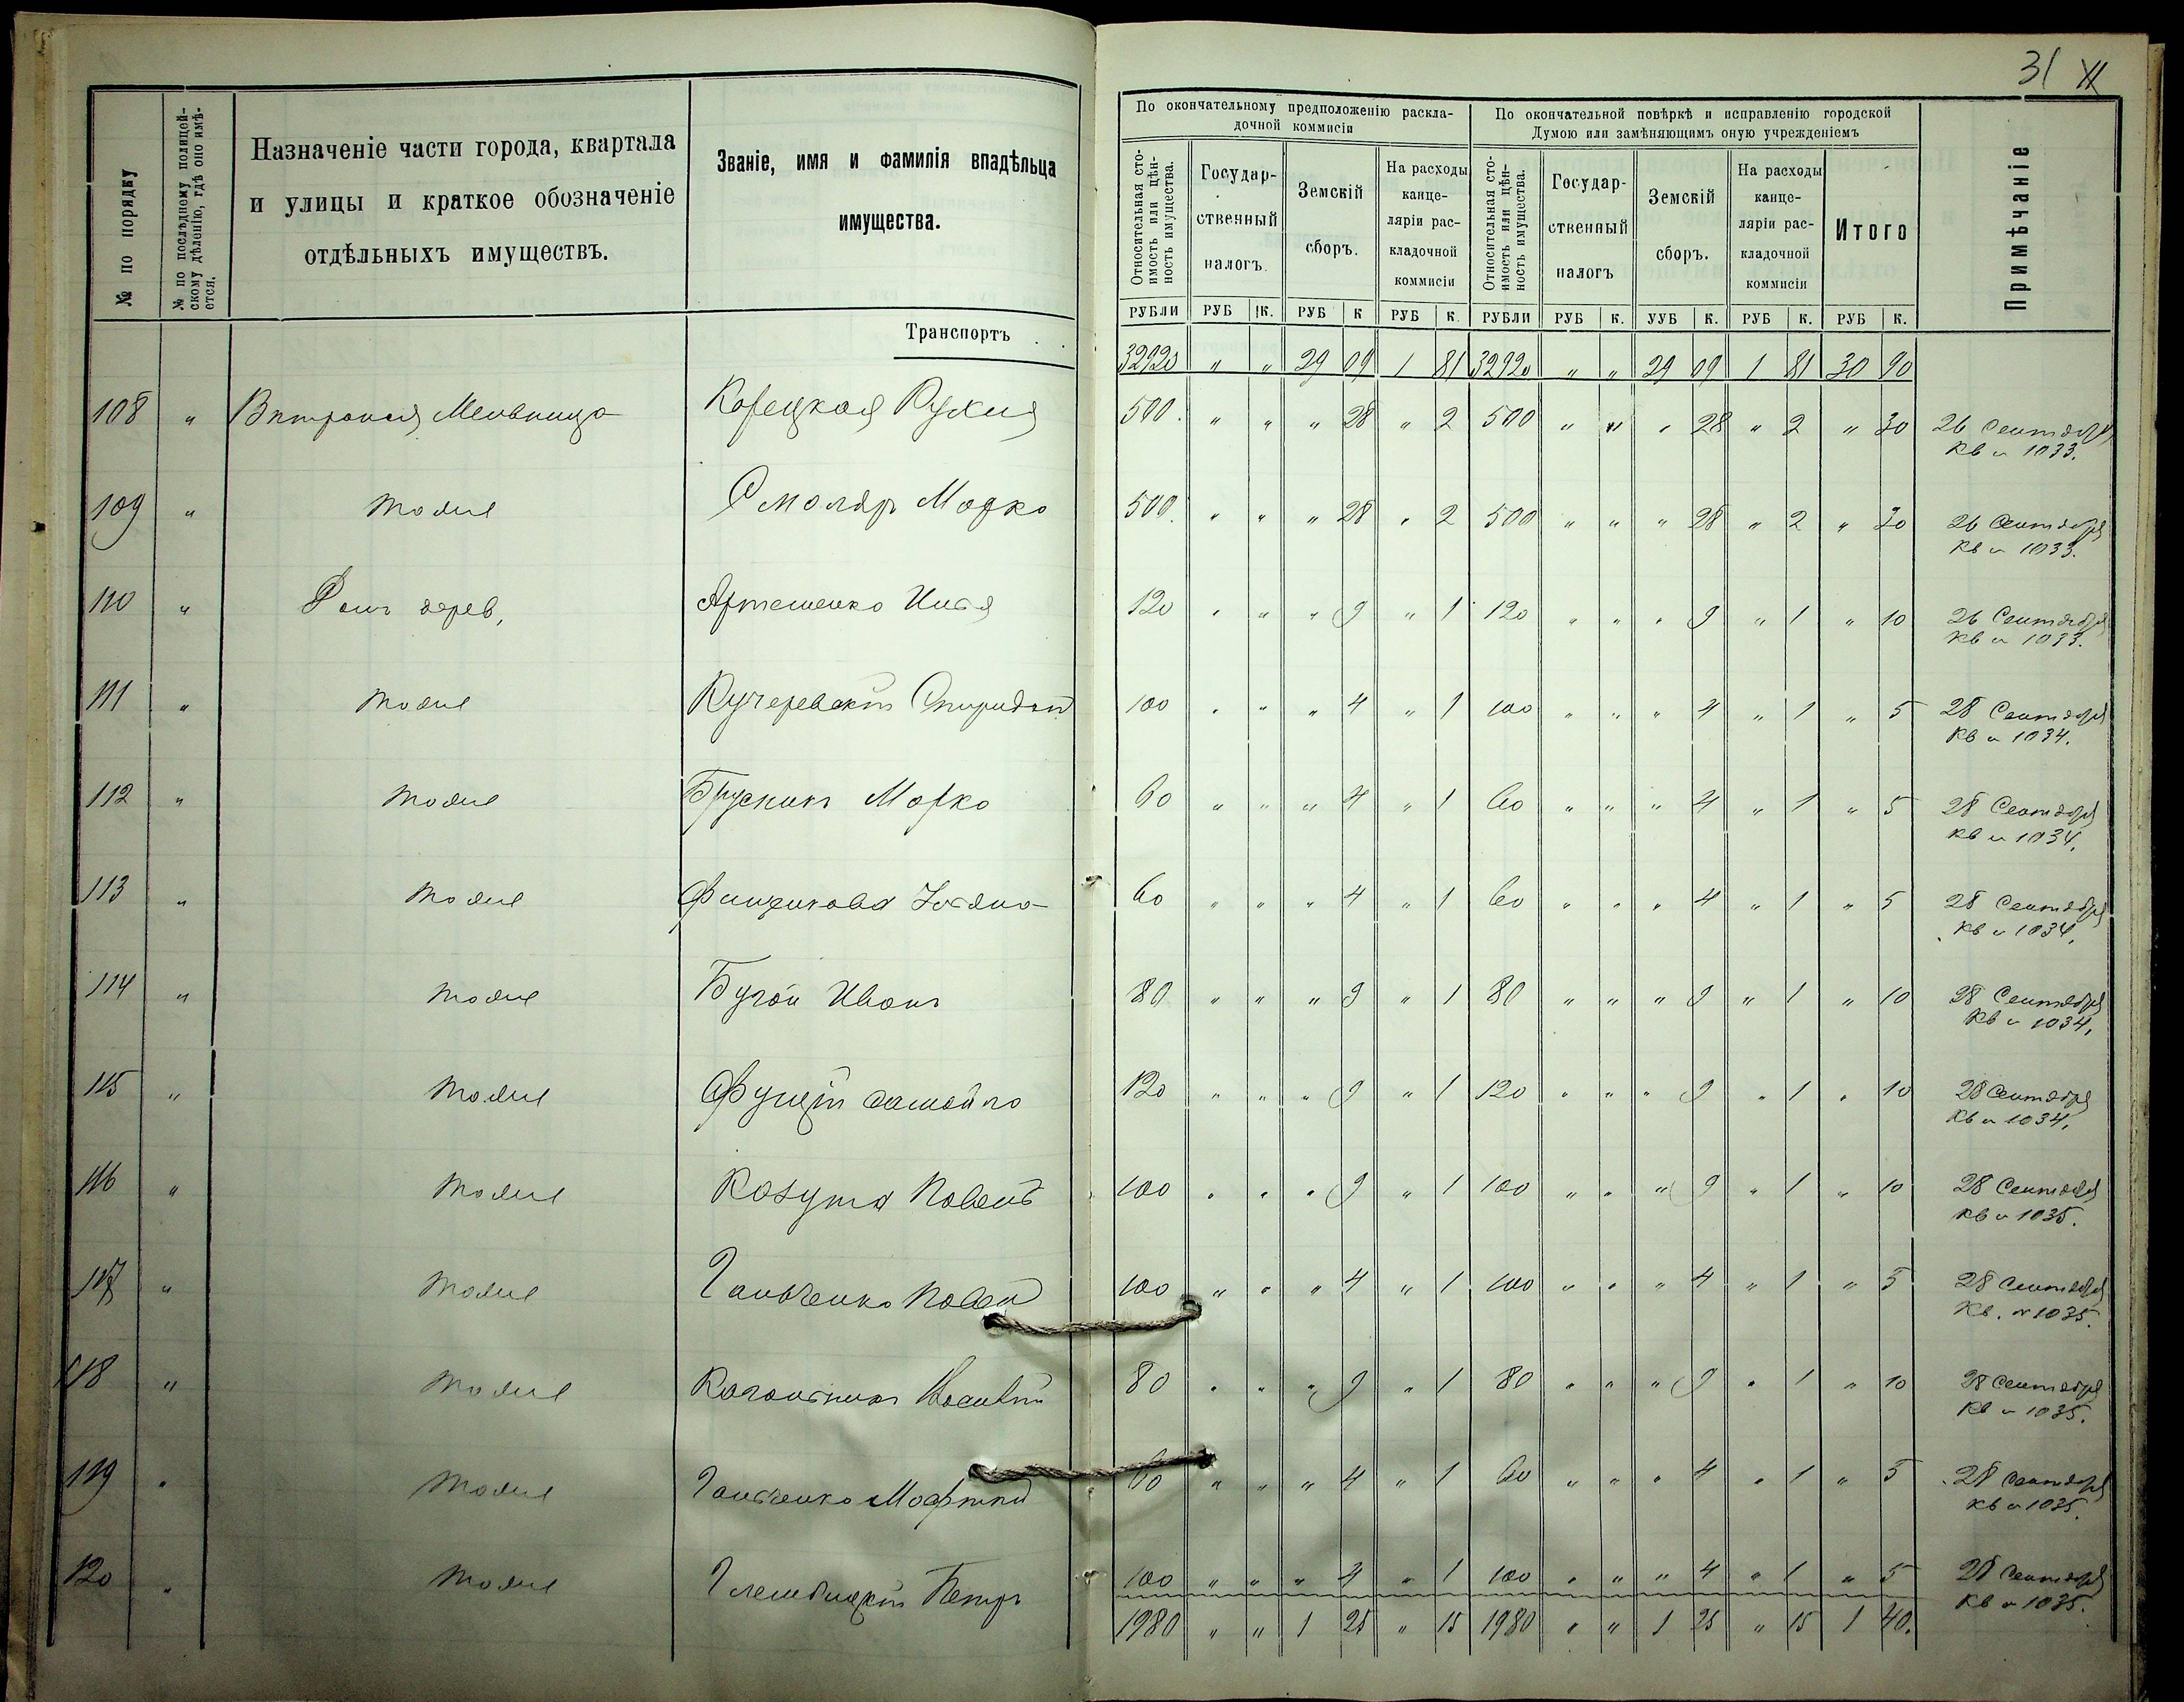 31
№ по порядку
№ по послѣднему полицей-
скому дѣленію, гдѣ оно имѣ-
ется.
Назначеніе части города, квартала
и улицы и краткое обозначеніе
отдѣльныхъ имуществъ.
Званіе, имя и фамилія впадѣльца
имущества.
По окончательному предположенію раскла-
дочной коммисіи
Относительная сто-
имость или цѣн-
ность имущества.
Государ-
ственный
налогъ.
Земскій
сборъ.
На расходы
канце-
ляріи рас-
кладочной
коммисіи
По окончательной повѣркѣ и исправленію городской
Думою или замѣняющимъ оную учрежденіемъ
Относительная сто-
имость или цѣн-
ность имущества.
Государ-
ственный
налогъ
Земскій
сборъ.
На расходы
канце-
ляріи рас-
кладочной
коммисіи
Итого
Примѣчаніе
РУБЛИ РУБ К. РУБ К РУБ К. РУБЛИ РУБ К. УУБ К. РУБ К. РУБ К.
Транспортъ . . 32920 " " 29 09 1 81 32920 " " 29 09 1 81 30 90
108 " Вѣтряная Мельница Корецкая Рухля 500. " " " 28 " 2 500 " " " 28 " 2 " 30 26 Сентября
Кв № 1033.
109 " тоже Смоляръ Мордко 500. " " " 28 " 2 500 " " " 28 " 2 " 30 26 Сентября
Кв № 1033.
110 " Домъ дерев. Артеменко Илья 120 " " " 9 " 1 120 " " " 9 " 1 " 10 26 Сентября
Кв № 1033.
111 " тоже Кучеревскій Спиридонъ 100 " " " 4 " 1 100 " " " 4 " 1 " 5 28 Сентября
Кв № 1034.
112 " тоже Марко 60 " " " 4 " 1 60 " " " 4 " 1 " 5 28 Сентября
Кв № 1034.
113 " тоже 60 " " " 4 " 1 60 " " " 4 " 1 " 5 28 Сентября
Кв № 1034.
114 " тоже Бугай Иванъ 80 " " " 9 " 1 80 " " " 9 " 1 " 10 28 Сентября
Кв № 1034.
115 " тоже Самойло 120 " " " 9 " 1 120 " " " 9 " 1 " 10 28 Сентября
Кв № 1034.
116 " тоже Козута Павелъ 100 " " " 9 " 1 100 " " " 9 " 1 " 10 28 Сентября
Кв № 1035.
117 " тоже Гальченко Павелъ 100 " " " 4 " 1 100 " " " 4 " 1 " 5 28 Сентября
Кв. № 1035.
118 " тоже 80 " " " 9 " 1 80 " " " 9 " 1 " 10 28 Сентября
Кв № 1035.
119 " тоже Гальченко 60 " " " 4 " 1 60 " " " 4 " 1 " 5 28 Сентября
Кв № 1035.
120 " тоже Петръ 100 " " " 4 " 1 100 " " " 4 " 1 " 5 28 Сентября
Кв № 1035.
1980 " " 1 25 " 15 1980 " " 1 25 " 15 1 40.